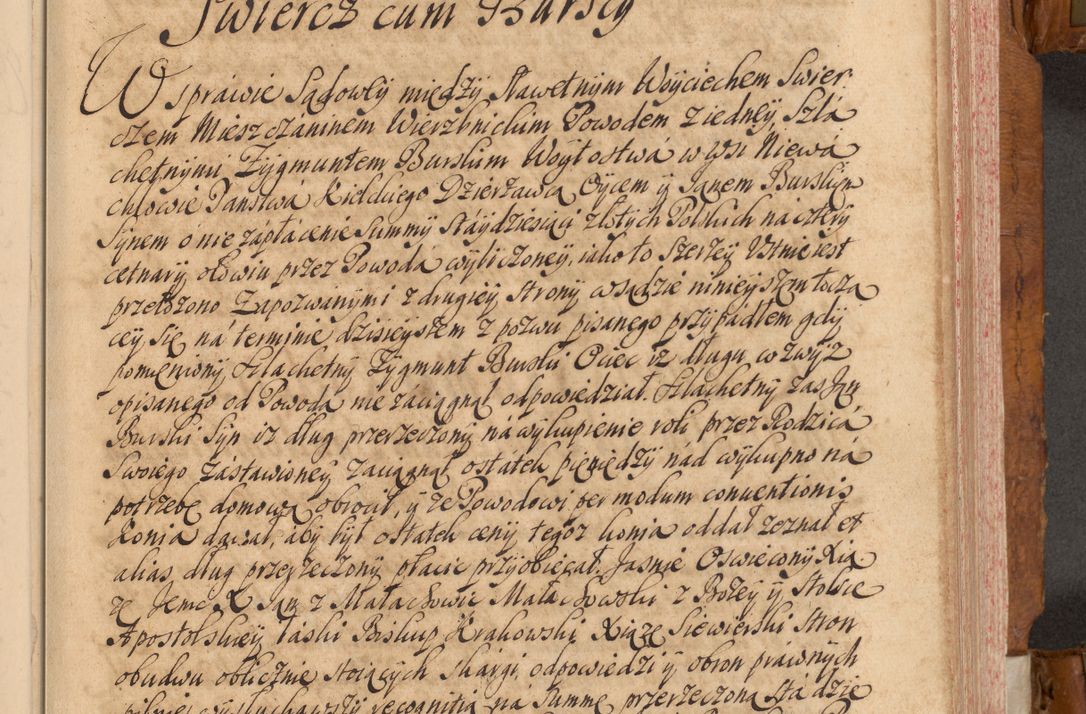 Swiercz cum Bursky
W sprawie Sądowey między Sławetnym Woyciechem Swier-
czem Mieszczáninem Wierzbnickim Powodem z iedney, Szla
chetnymi Zygmuntem Burskim Woytostwá w wsi Niewá
chlowie Państwá Kieleckiego Dzierżawcą Oycem y Janem Burskiym
Synem o nie zápłácenie Summy stáydziesiąci złotych Polskich ná cztery
cetnary ołowiu przez Powodá wyliczoney, iáko to szerzey Vstnie iest
przełożono Zapozwanymi z drugiey strony w sądzie ninieyszem tocżą
cey się ná terminie dzisieyszem z pozwu pisanego przypadłem gdy
pomieniony Szlachetny Zygmunt Burski Ociec iż długu w zwyż
opisanego od Powodá nie záciągnął odpowiedział. Szlachetny zas Jan
Burski Syn iż dług przerzeczony ná wykupienie roli przez Rodzicá
Swoiego zástawioney zaciągnął, ostátek pieniędzy nád wykupno ná
potrzebę domową obrócił, y że Powodowi per modum conuentionis
konia dawał, áby był ostatek ceny tegoż konia oddał zeznał et
alias dług przerzeczony płacic przyobiecał. Jasnie Oswiecony Xią
że Jemć X Jan z Małachowic Małachowski z Bożey y Stolice
Apostolskiey łáski Biskup Krakowski, Xiąże Siewierski Stron
obudwu oblicznie stoiących skargi, odpowiedzi y obron prawnych
pilnie wysłuchawszy recognitią ná Summę przerzeczoną stá dzie